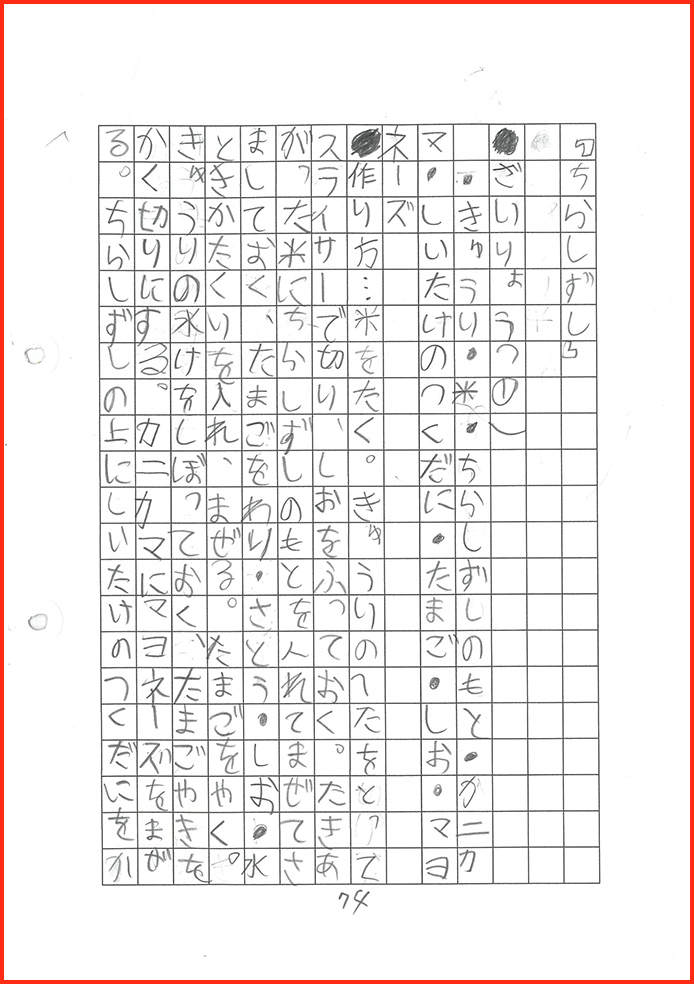 「ちらしずし」
●ざいりょう(①)
・きゅうり・米・ちらしずしのもと・カニカ
マ・しいたけのつくだに・たまご・しお・マヨ
ネーズ
●作り方…米をたく。きゅうりのへたをとって
スライサーで切り、しおをふっておく。たきあ
がった米にちらしずしのもとを入れてまぜてさ
ましておく、たまごをわり・さとう・しお・水
ときかたくりを入れ、まぜる。たまごをやく。
きゅうりの水けをしぼっておく、たまごやきを
かく切りにする。カニカマにマヨネーズをまぜ
る。ちらしずしの上にしいたけのつくだにをか
74